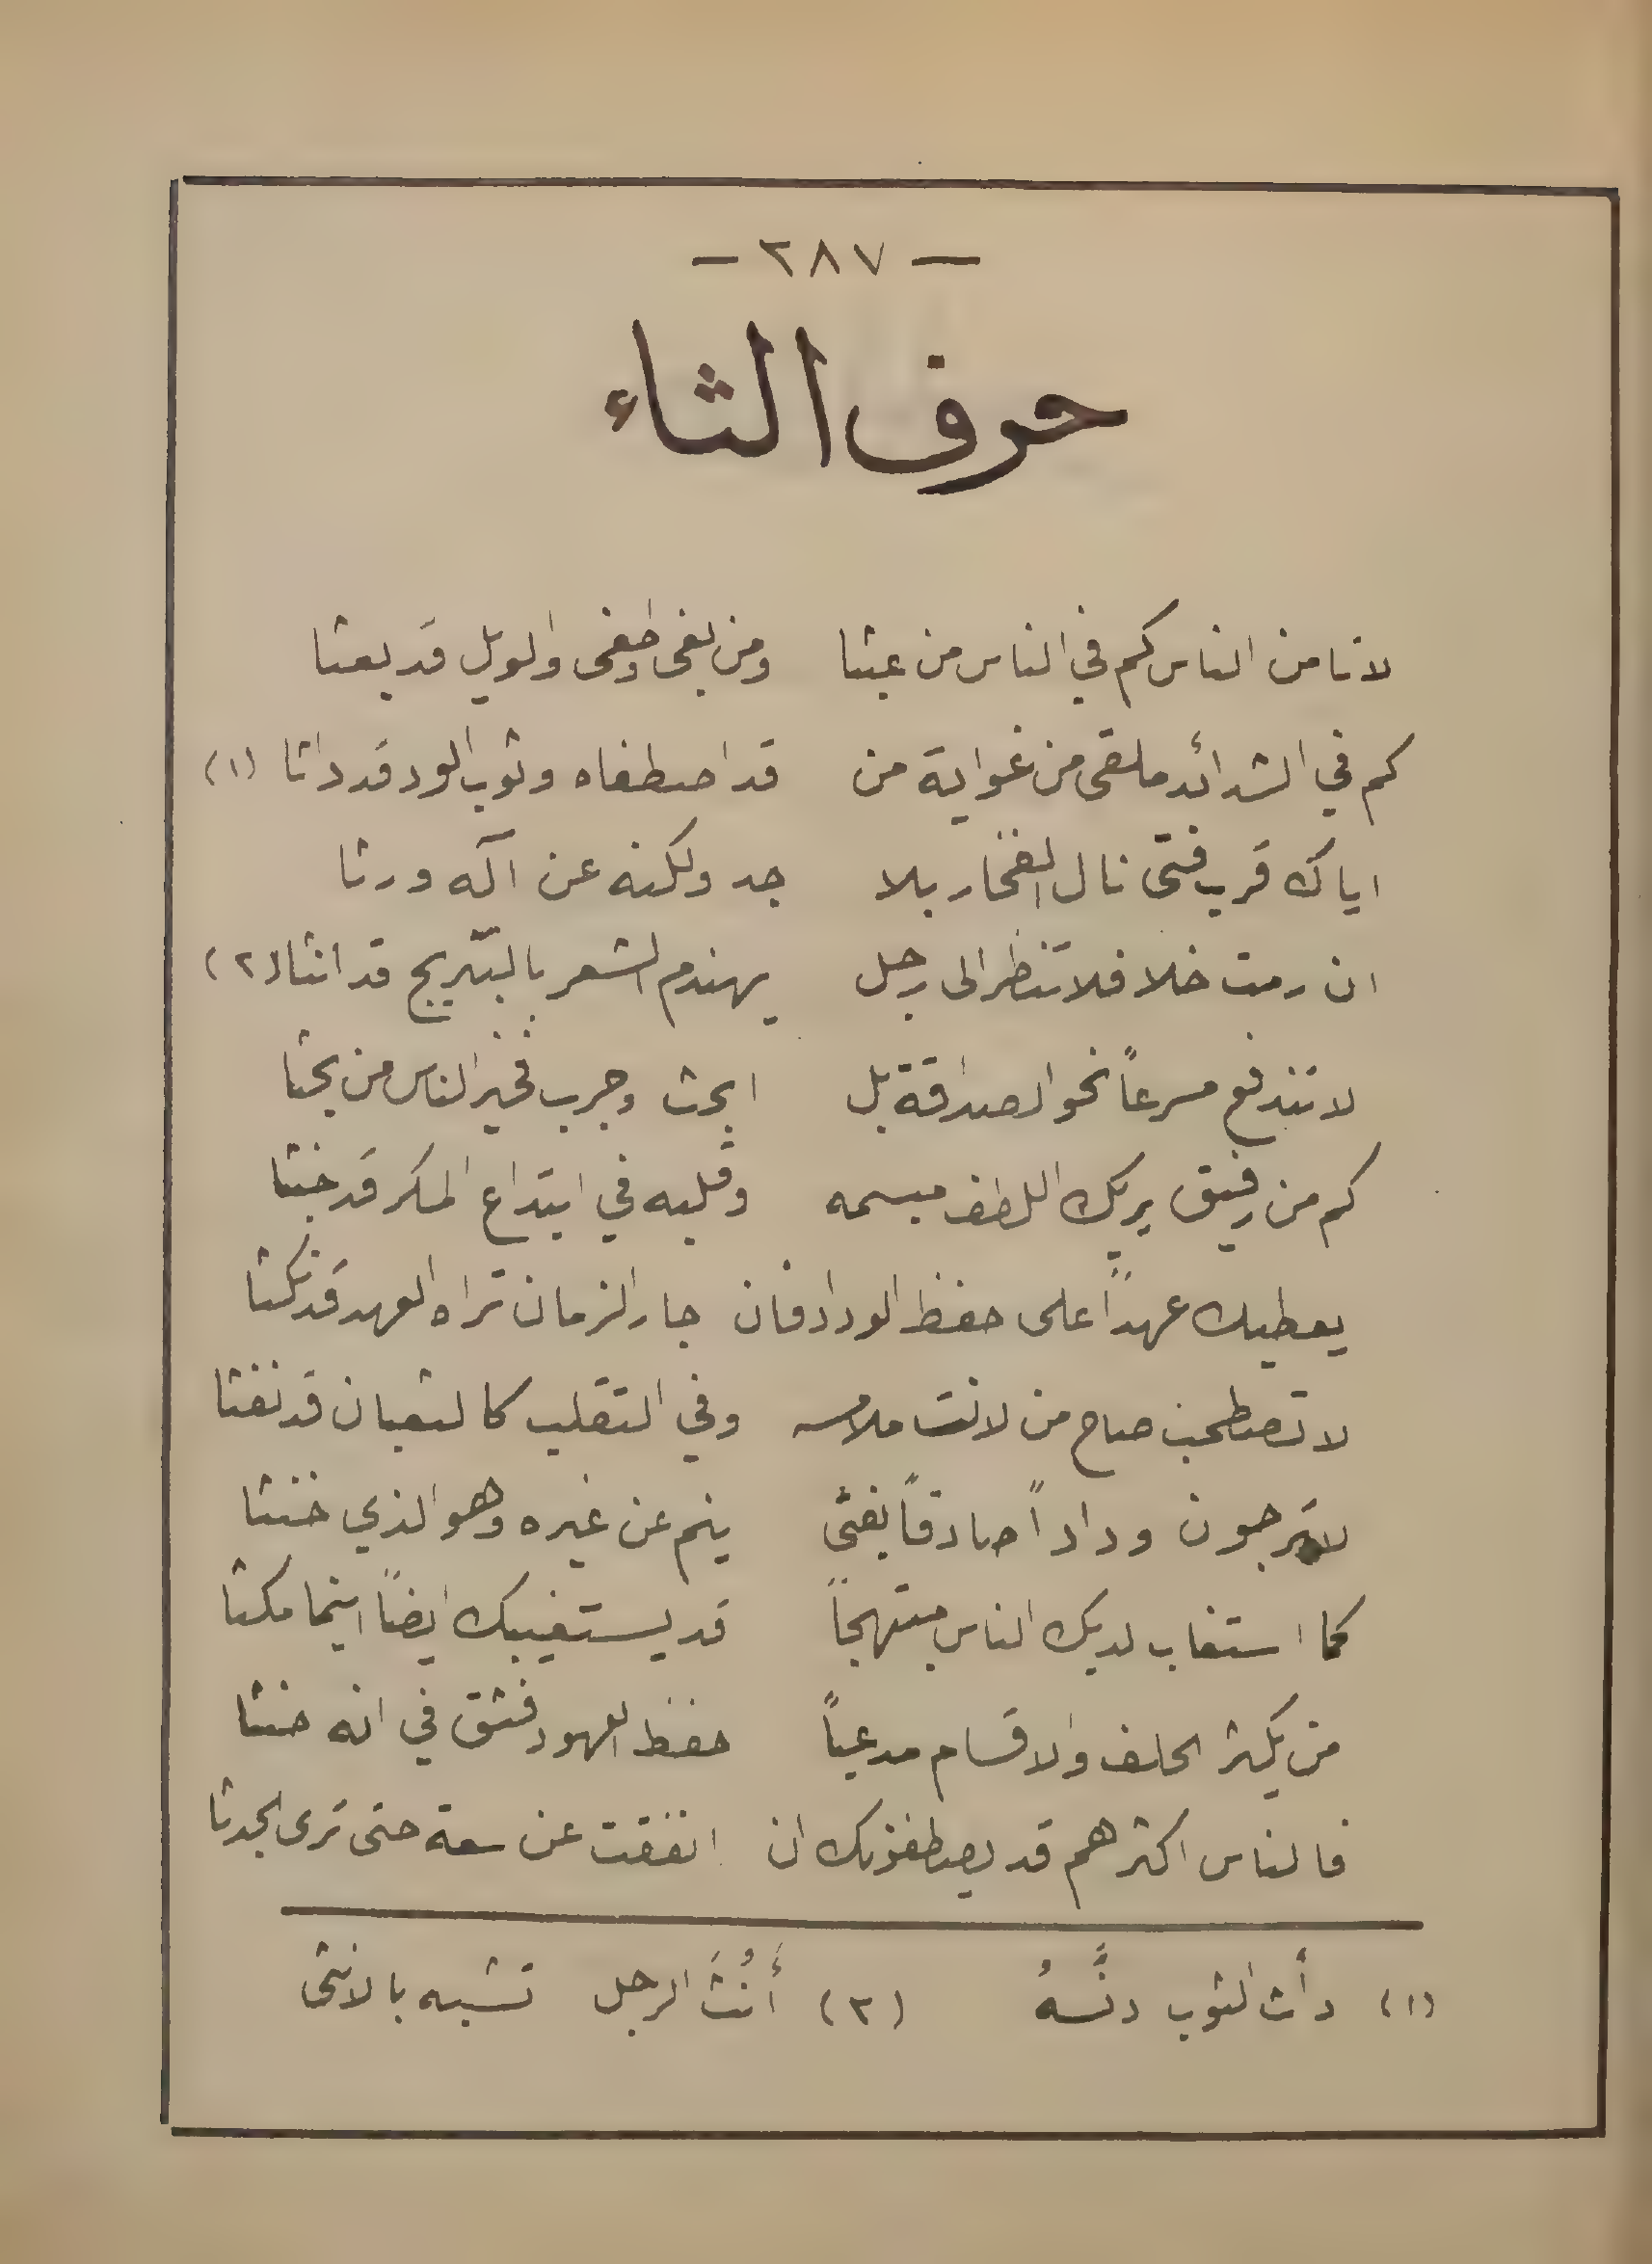 — ٢٨٧ —
حرف الثاء
لا تامن الناس كم في الناس من عبثا ومن بغى وطغى والويل قد بعثا
كم في الشدائد ملقى من غواية من قد اصطفاه وثوب الود قد داثا (١)
اياك قرب فتى نال الفخار بلا جد ولكنه عن آله ورثا
ان رمت خلا فلا تنظر الى رجل يهندم الشعر بالتبريج قد انثا (٢)
لا تندفع مسرعاً نحو الصداقة بل ابحث وجرب فخير الناس من بحثا
كم من رفيق يريك اللطف مبسمه وقلبه في ابتداع المكر قد خبثا
يعطيك عهداً على حفظ الوداد فان جار الزمان تراه العهد قد نكثا
لا تصطحب صاح من لانت ملامسه وفي التقلب كالثعبان قد نفثا
لا ترجون وداداً صادقاً بفتى ينم عن غيره وهو الذي خنثا
كما استغاب لديك الناس مبتهجاً قد يستغيبك ايضاً اينما مكثا
من يكثر الحلف والاقسام مدعياً حفظ العهود فثق في انه حنثا
فالناس اكثرهم قد يصطفونك ان انفقت عن سعة حتى ترى الجدثا
(١) دأث الثوب دنَّسهُ (٢) أَنُثَ الرجل تشبه بالانثى